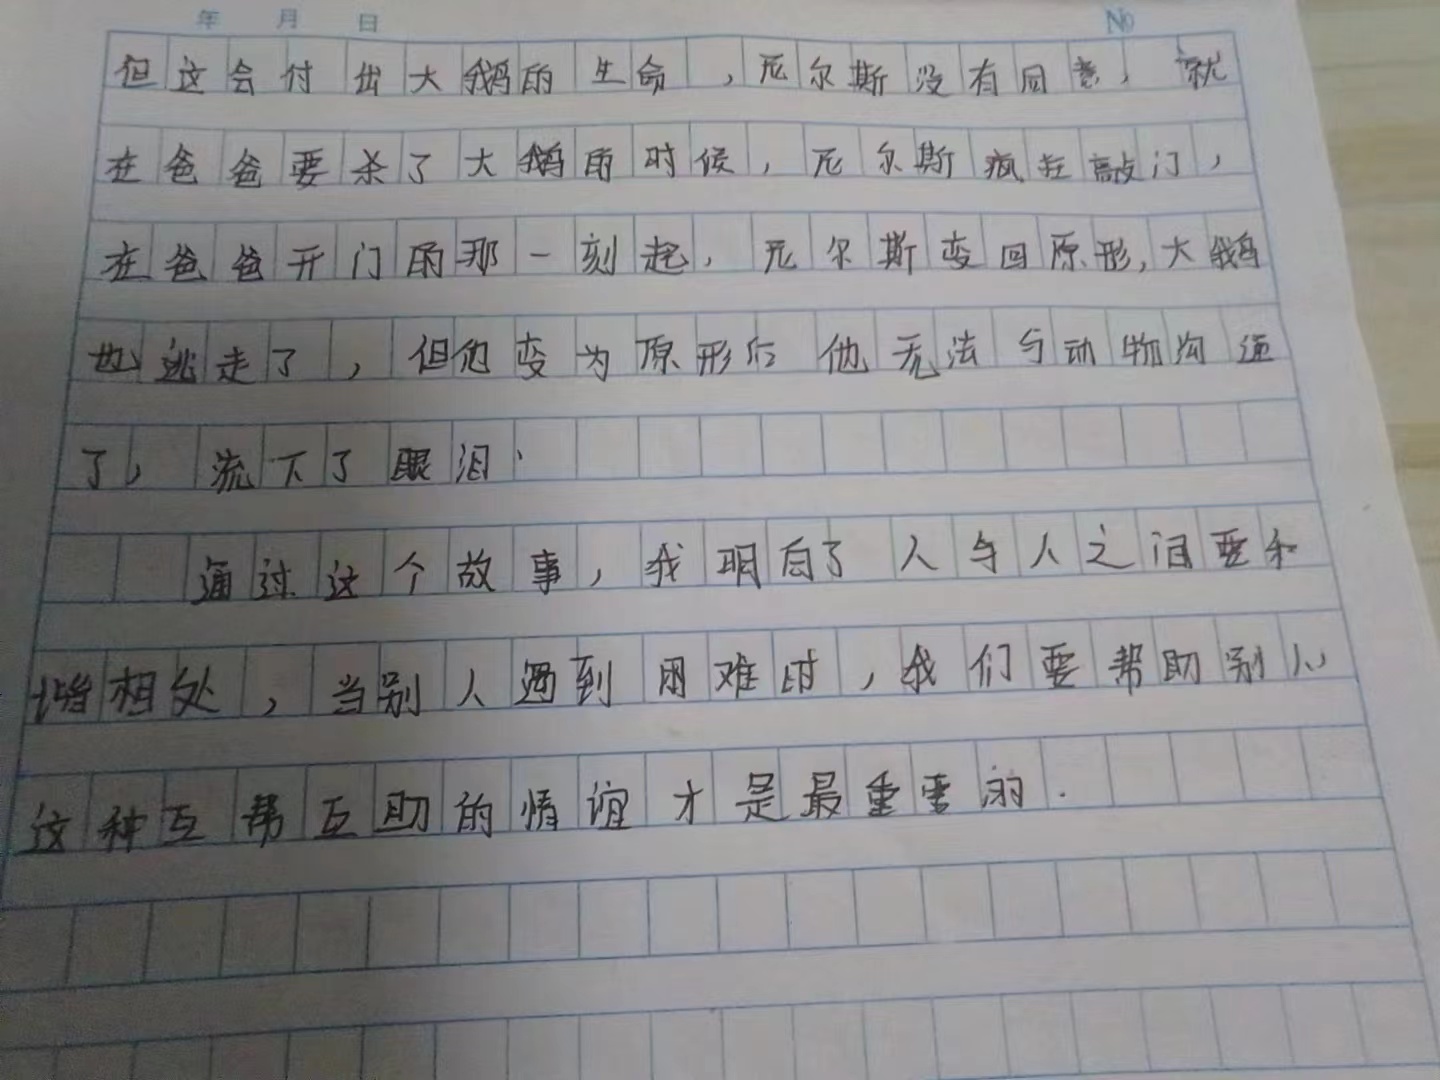 年 月 日 No
但这会付出大鹅的生命,尼尔斯没有同意,就
在爸爸要杀了大鹅的时候,尼尔斯疯狂敲门,
在爸爸开门的那一刻起,尼尔斯变回原形,大鹅
也逃走了,但他变为原形后他无法与动物沟通
了,流下了眼泪.
通过这个故事,我明白了人与人之间要和
谐相处,当别人遇到困难时,我们要帮助别人,
这种互帮互助的情谊才是最重要的.